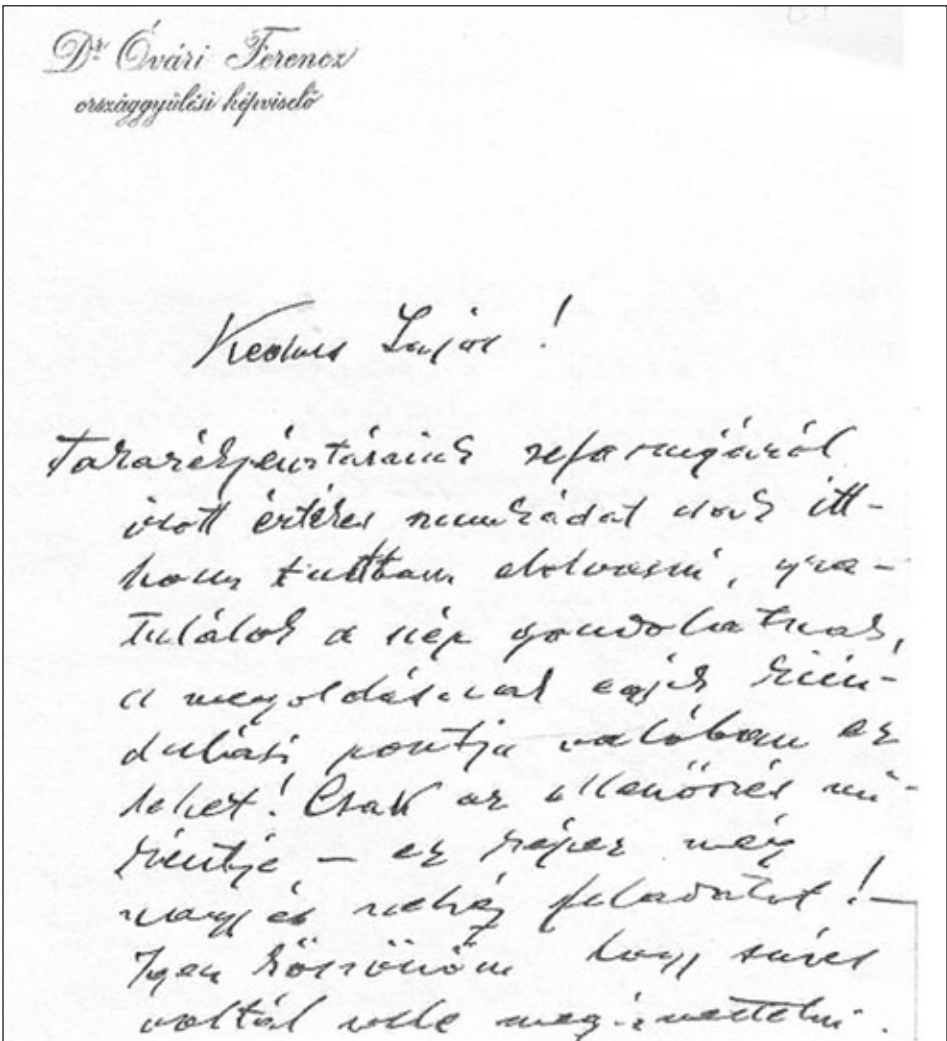 Dr. Óvári Ferencz
országgyülési képviselő
Kedves Lajos!
Takarékpénztáraink reformjáról
írott értékes munkádat csak itt-
hon tudtam elolvasni, gra-
tulálok a szép gondolatnak,
a megoldásnak egyik kiin-
dulási pontja valóban ez
lehet! Csak az ellenőrzés mi-
kéntje – ez képez még
nagy és nehéz feladatot! –
Igen köszönöm hogy szíves
voltál vele megismertetni.